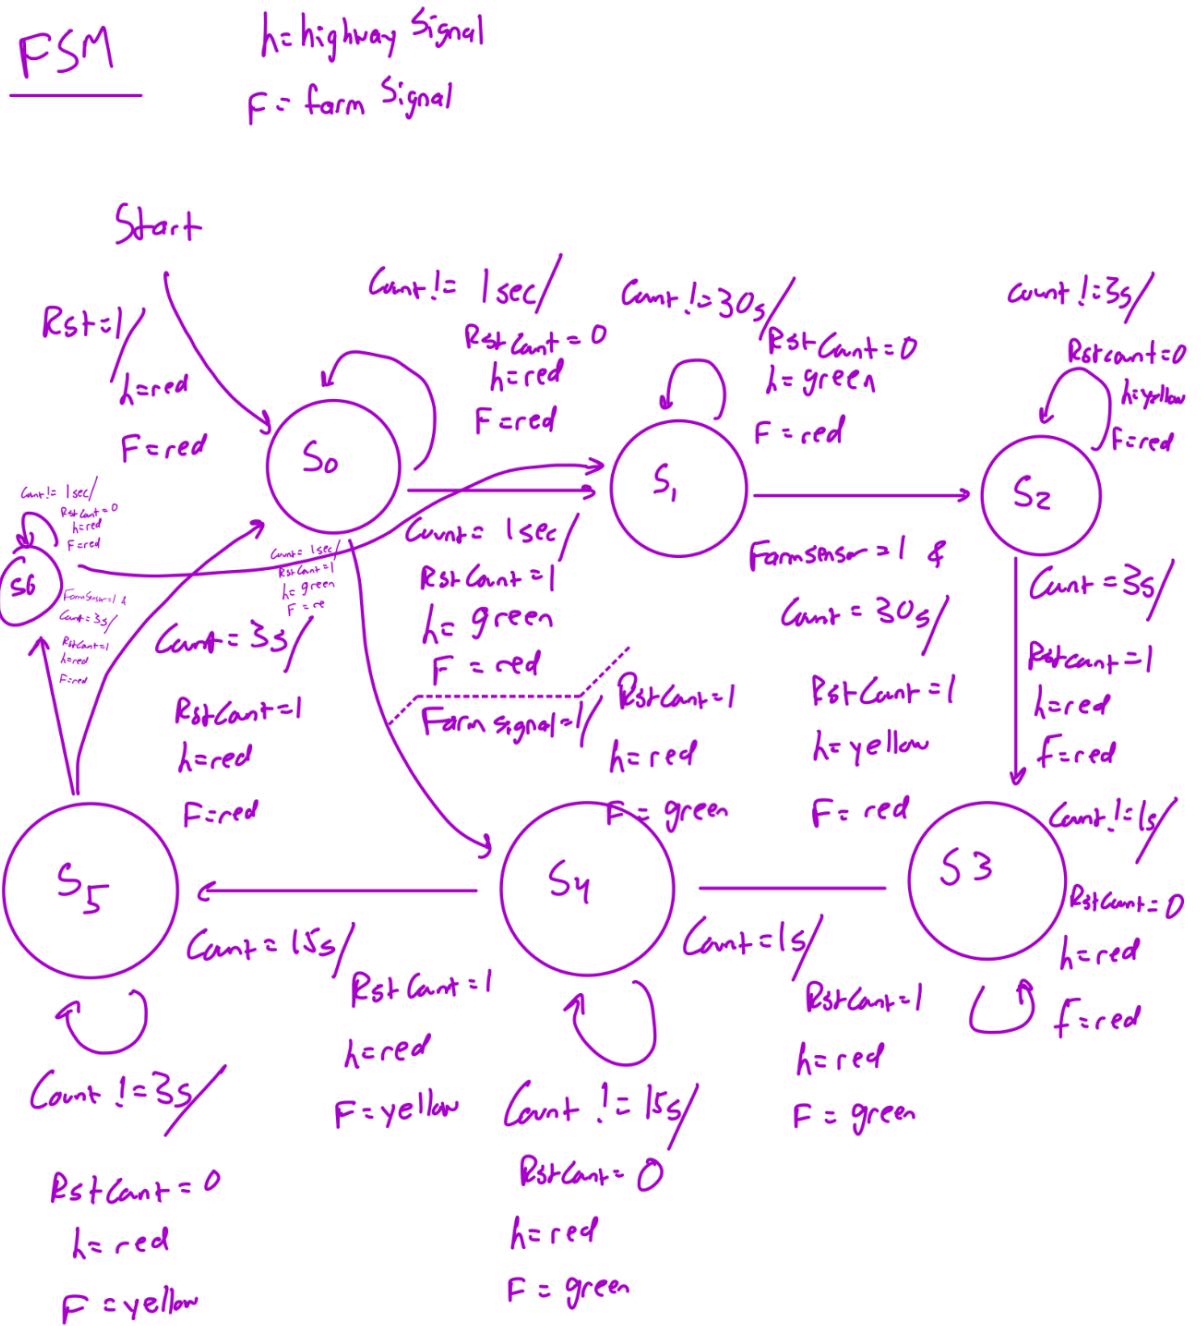 FSM
h=highway Signal
F= farm Signal
Start
Rst=1/
h=red
F=red
Count != 1sec/
RstCount=0
h=red
F=red
S0
Count !=30s/
RstCount=0
h=green
F=red
S1
Count !=3s/
Rstcount=0
h=yellow
F=red
S2
Count != 1sec/
RstCount=0
h=red
F=red
S6
Farmsensor=1 &
Count=3s/
RstCount=1
h=red
F=red
Count= 1sec/
RstCount=1
h= green
F = re
Count= 1sec/
RstCount=1
h= green
F = red
Farmsensor=1 &
Count= 30s/
RstCount=1
h= yellow
F= red
Count=3s/
Rstcount=1
h=red
f=red
Count= 3s/
RstCount=1
h=red
F=red
Farm signal=1/
RstCount=1
h=red
F= green
S5
S4
S3
Count !=1s/
RstCount=0
h=red
f=red
Count= 15s/
RstCount=1
h=red
F=yellow
Count=1s/
RstCount=1
h=red
F= green
Count !=3s/
RstCount=0
h= red
F =yellow
Count != 15s/
RstCount=0
h=red
F= green